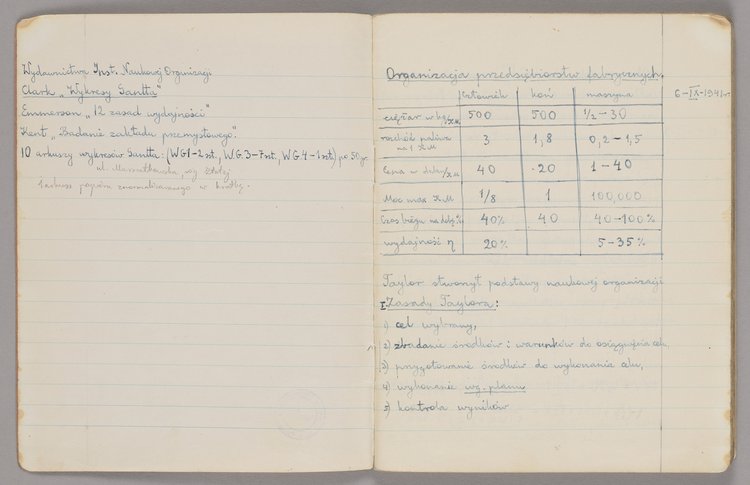 Wydawnictwa Inst. Naukowej Orginizagi
Clark „Wykresy Gantta"
Emmerson „12 zasad wydajności"
Kent „Badanie zakładu przemysłowego"
10 arkuszy wykresów Gantta: (WG1-2szt., W.G.3-7szt, W.G.4-1szt) po 50 gr.
ul. Marszałkowska, róg Złotej
1 arkusz papieru znormalizowanego w kratkę.
Organizacja przedsiębiorstw fabrycznych.
6-IX-1941r
człowiek koń maszyna
ciężar w kg/KM 500 500 1/2-30
rozchód paliwa na 1 KM 3 1,8 0,2-1,5
Cena w dol./KM 40 20 1-40
Moc max KM 1/8 1 100,000
Czas biegu na dobę% 40% 40 40-100%
wydajność η 20% 5-35%
Taylor stworzył podstawy naukowej organizacji
I Zasady Taylora:
1) cel wybrany,
2) zbadanie środków i warunków do osiągnięcia celu,
3) przygotowanie środków do wykonania celu,
4) wykonanie wg. planu
5) kontrola wyników